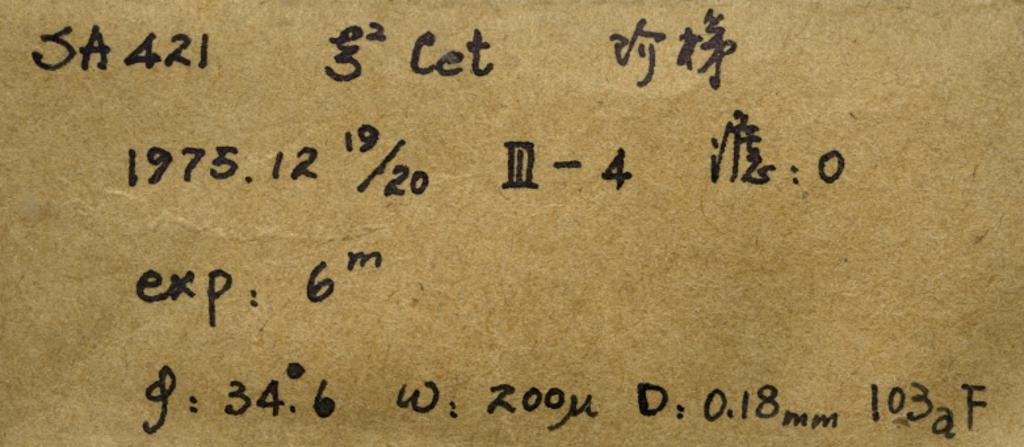 SA 421 ξ² Cet 阶梯
1975.12 19/20 Ⅲ-4 滤:0
exp: 6ᵐ
φ: 34°.6 ω: 200μ D: 0.18mm 103aF